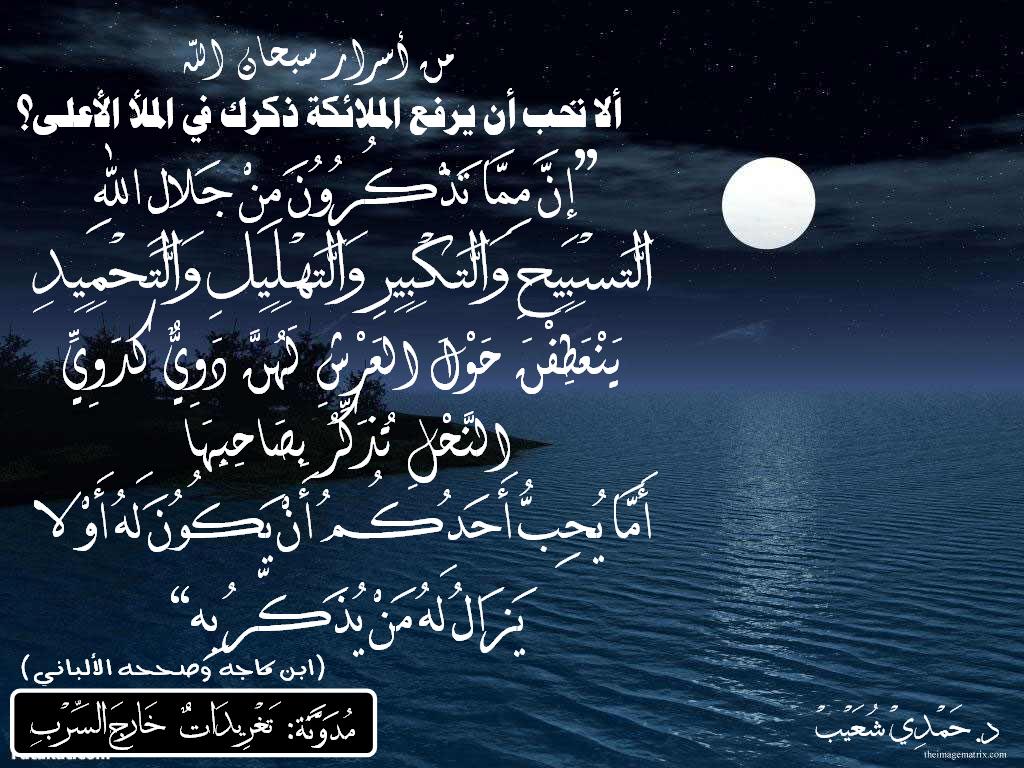 من أسرار سبحان الله
ألا تحب أن يرفع الملائكة ذكرك في الملأ الأعلى؟
”إِنَّ مِمَّا تَذْكُرُونَ مِنْ جَلالِ اللهِ
التَّسبِيْحِ وَالتَّكْبِيْرِ وَالتَّهْلِيْلِ وَالتَّحْمِيْدِ
يَنْعَطِفْنَ حَوْلَ العَرْشِ لَهُنَّ دَوِيٌّ كَدَوِيِّ
النَّحْلِ تُذَكِّرُ بِصَاحِبِهَا
أَمَّا يُحِبُّ أَحَدُكُمُ أَنْ يَكُونَ لَهُ أَوْ لا
يَزَالُ لَهُ مَنْ يُذَكِّرُ بِهِ“
(ابن ماجه وصححه الألباني)
مُدَوَّنَة: تَغْرِيدَاتٌ خَارِجَ السِّرْبِ
د. حَمْدِيْ شُعَيْبْ
theimagematrix.com